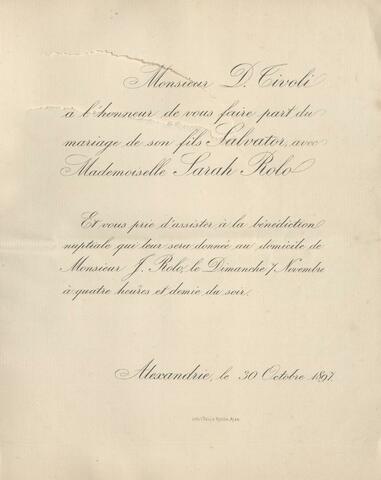 Monsieur D. Tivoli
à l'honneur de vous faire part du
mariage de son fils Salvator, avec
Mademoiselle Sarah Rolo
Et vous prie d'assister à la bénédiction
nuptiale qui leur sera donnée au domicile de
Monsieur J. Rolo, le Dimanche 7 Novembre
à quatre heures et demie du soir.
Alexandrie, le 30 Octobre 1897.